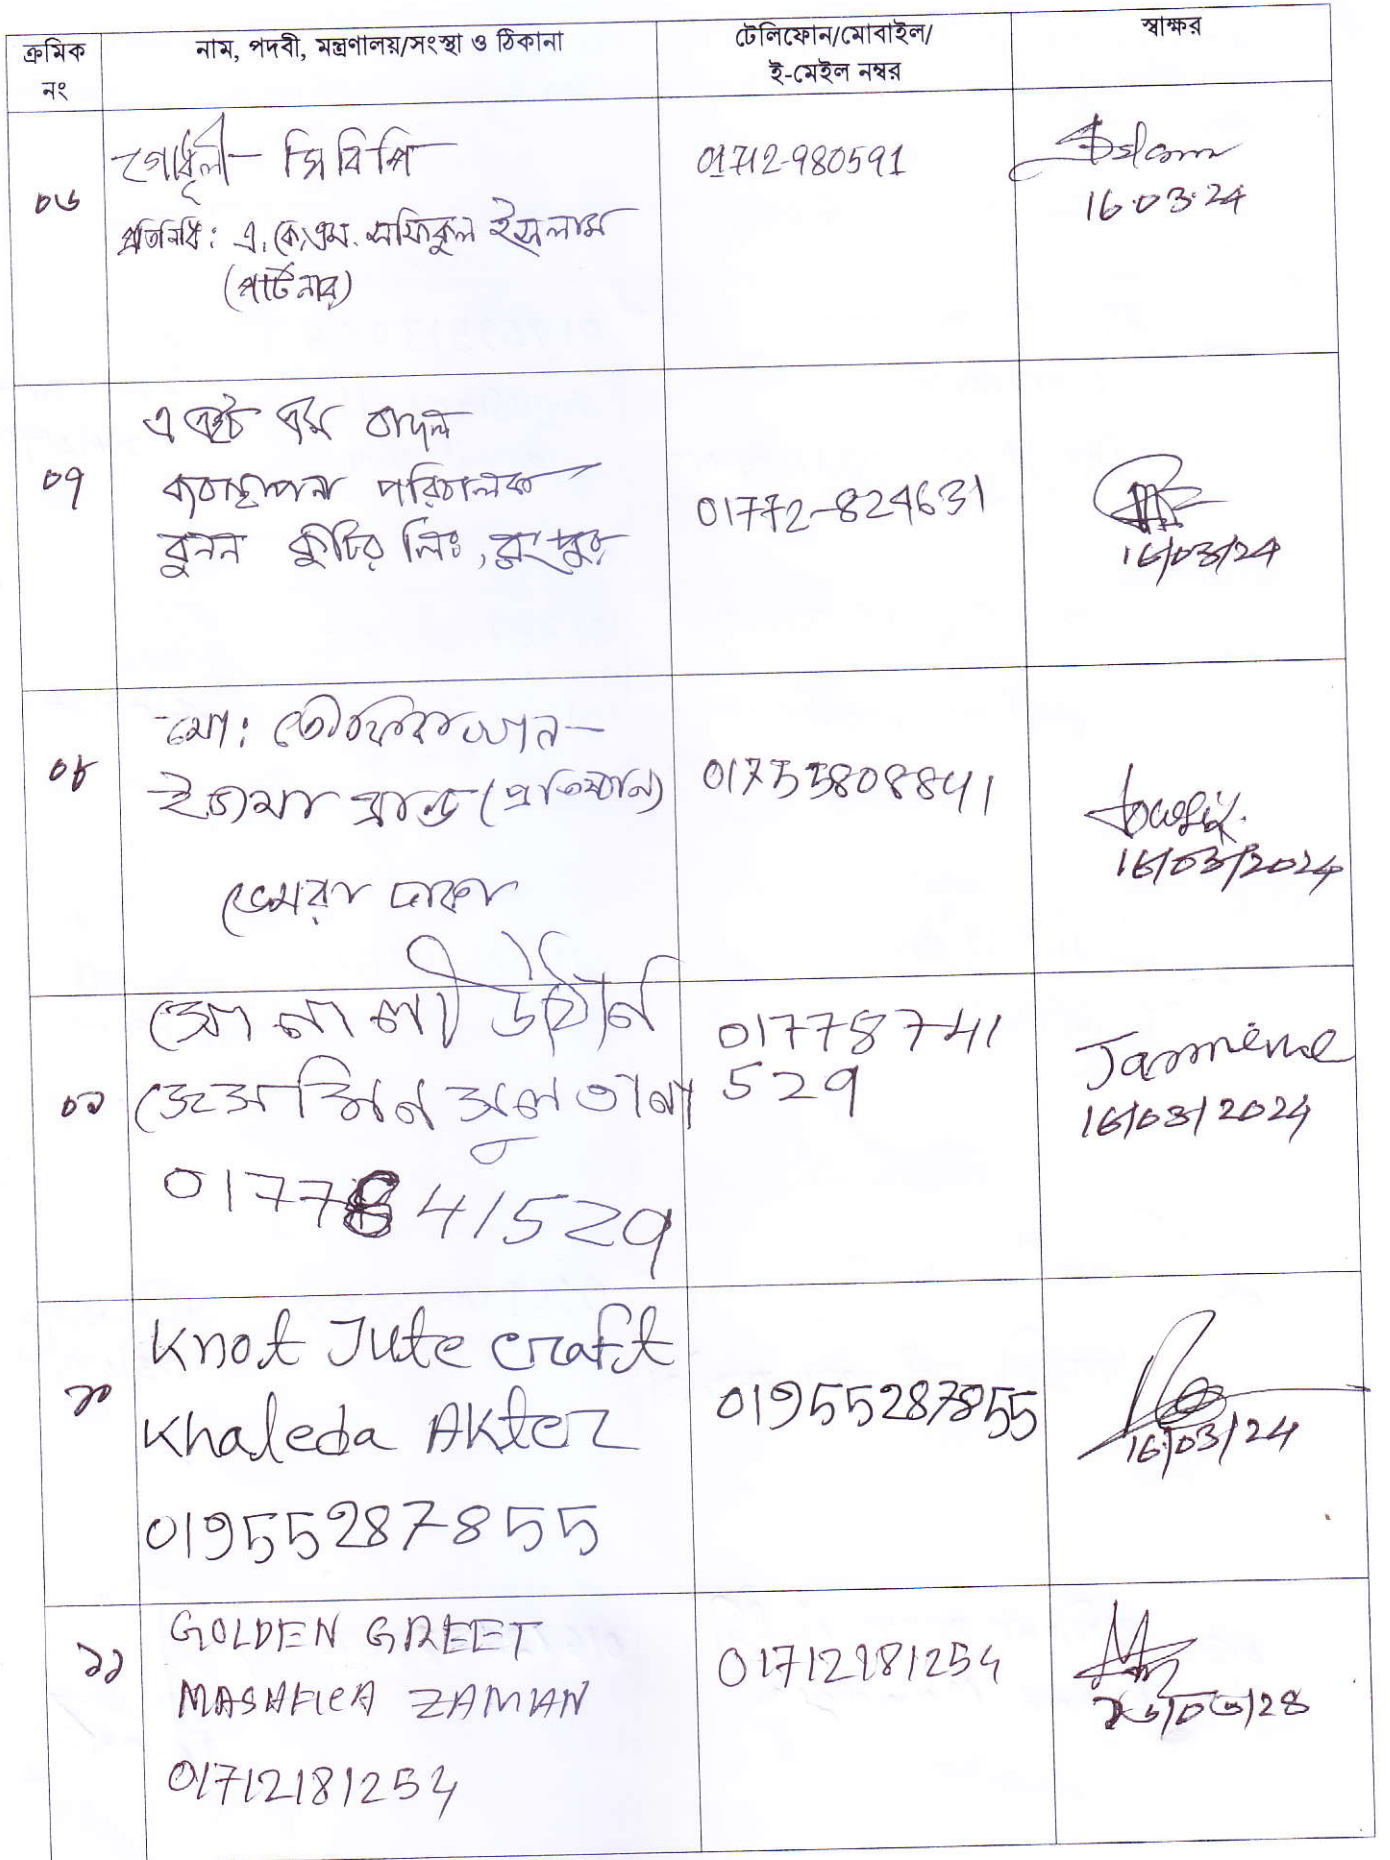 ক্রমিক নং
নাম, পদবী, মন্ত্রণালয়/সংস্থা ও ঠিকানা
টেলিফোন/মোবাইল/
ই-মেইল নম্বর
স্বাক্ষর
০৬
গোধূলী সিবিপি
প্রতিনিধি: এ,কে,এম. সফিকুল ইসলাম
(পার্টনার)
01712-980591
Islam
16.03.24
০৭
এ এইচ এম বাদল
ব্যবস্থাপনা পরিচালক
বুনন কুটির লিঃ, রংপুর
01772-824631
16/03/24
০৮
মো:
(প্রতিষ্ঠান)
ডেমরা ঢাকা
01755808841
towfiq
16/03/2024
০৯
সোনালী
জেসমিন সুলতানা
0177841529
01778741
529
Jasmine
16/03/2024
১০
Knot Jute craft
Khaleda Akter
01955287855
01955287855
16/03/24
১১
GOLDEN GREET
MASHFICA ZAMAN
01712181254
01712181254